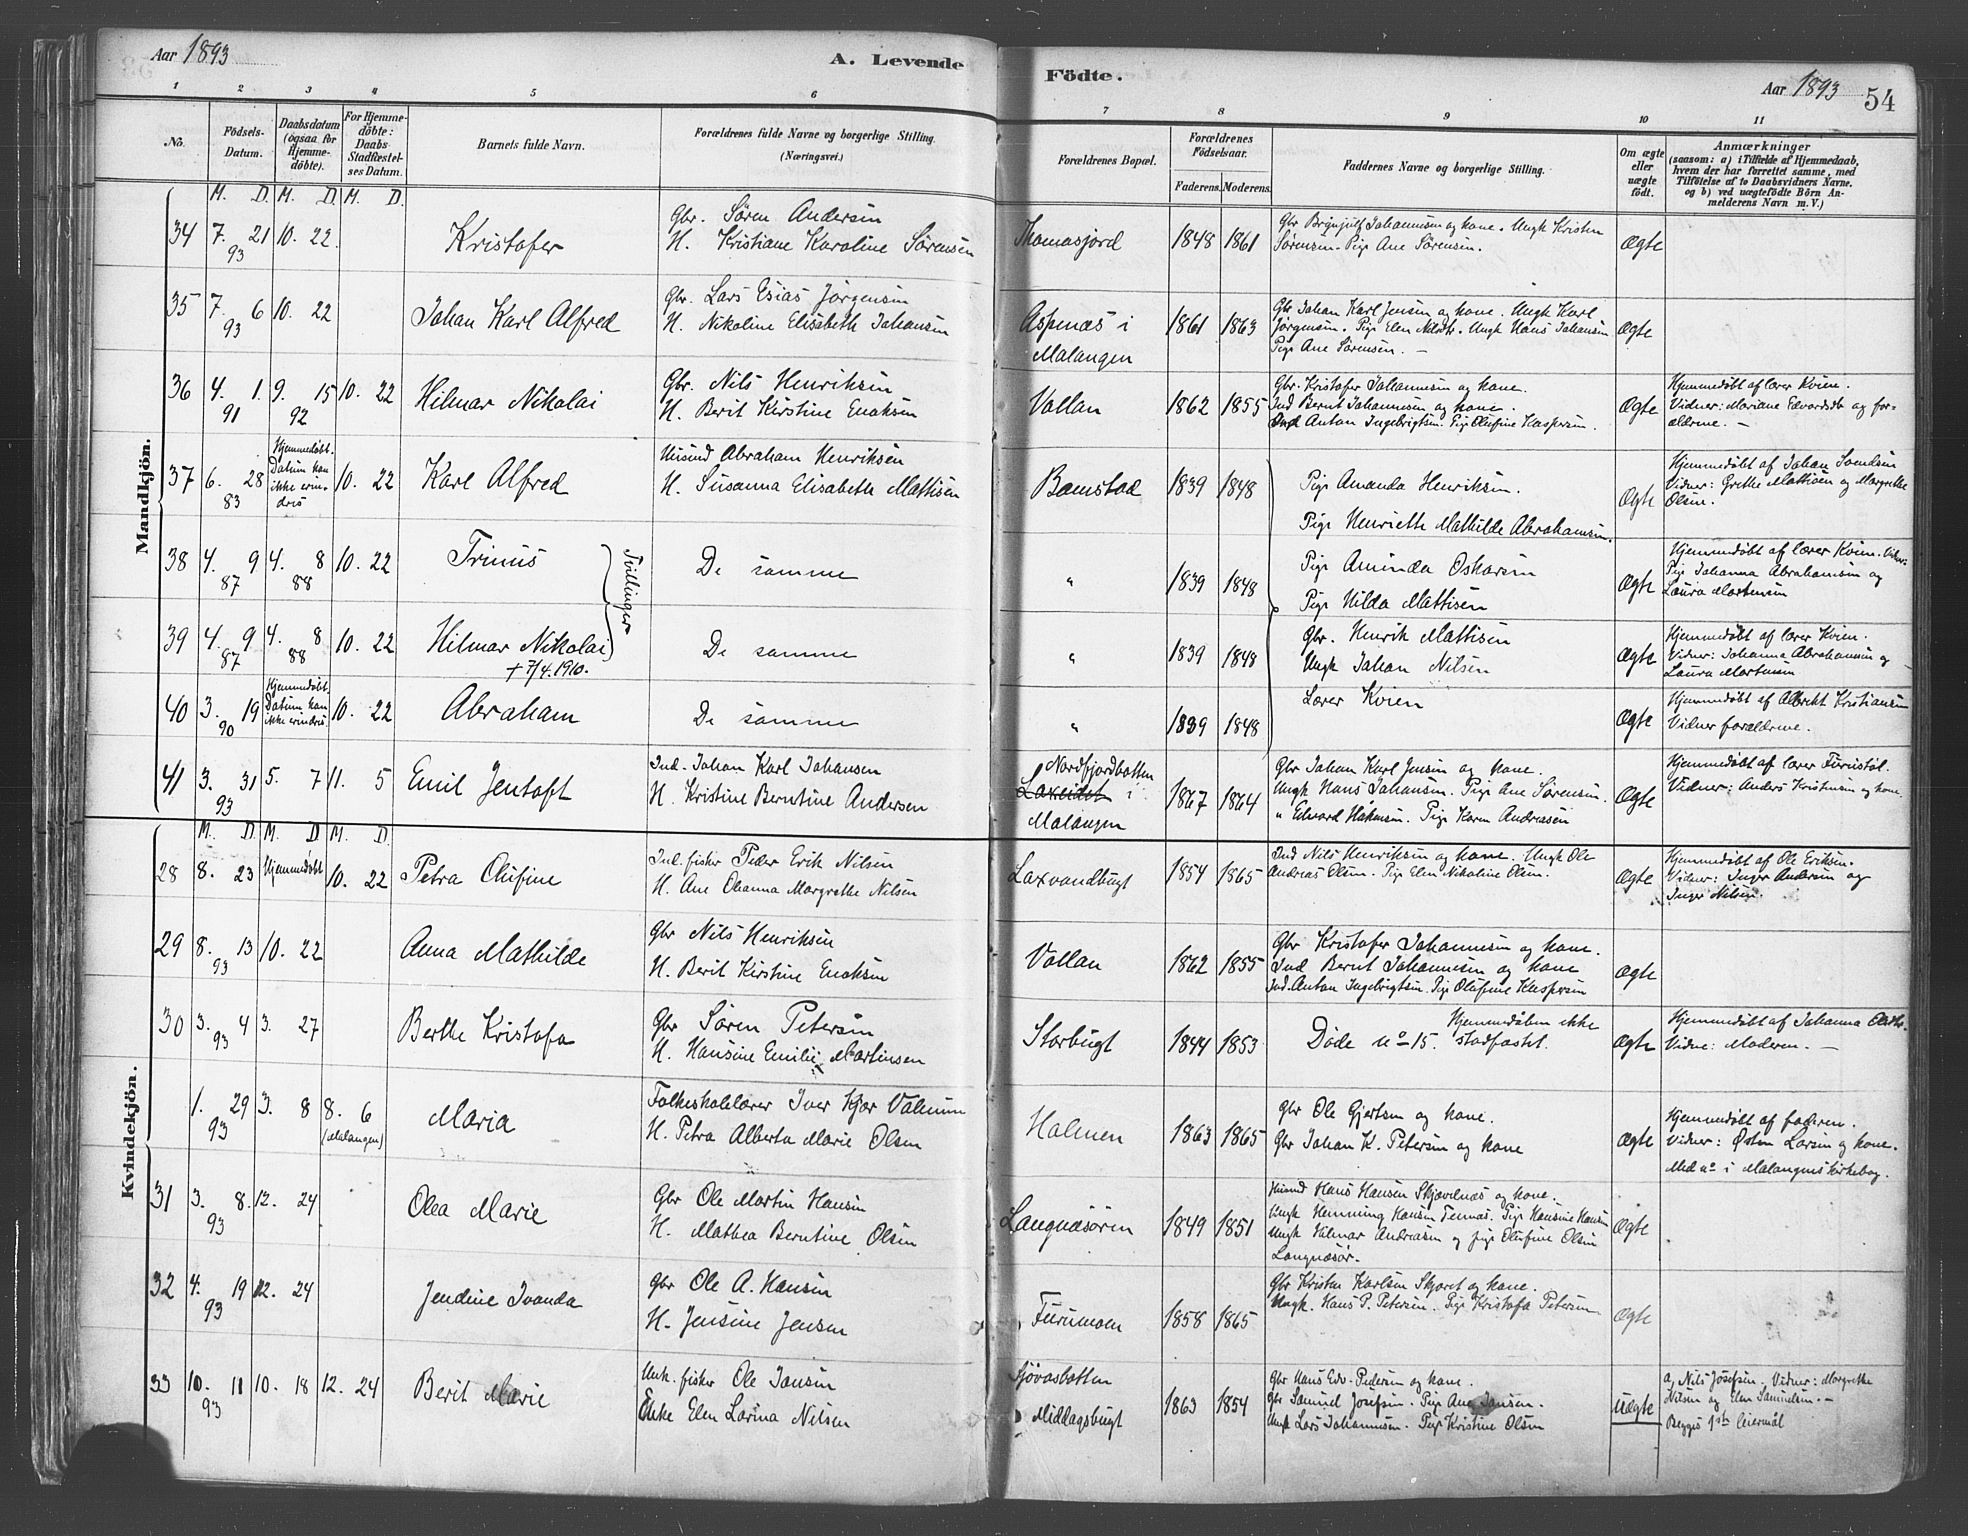 Aar 1893
A. Levende
Födte.
Aar 1893
54
1 2 3 4 5 6 7 8 9 10 11
No.
Födsels-
Datum.
Daabsdatum
(ogsaa for
Hjemme-
döbte).
For Hjemme-
döbte:
Daabs-
Stadfæstel-
ses Datum.
Barnets fulde Navn.
Forældrenes fulde Navne og borgerlige Stilling.
(Næringsvei.)
Forældrenes Bopæl.
Forældrenes
Födselsaar.
Faderens. Moderens.
Faddernes Navne og borgerlige Stilling.
Om ægte
eller
uægte
födt.
Anmærkninger
(saasom: a) i Tilfælde af Hjemmedaab,
hvem der har forrettet samme, med
Tilföielse af to Daabsvidners Navne,
og b) ved uægtefödte Börn An-
melderens Navn m. V.)
Mandkjön.
M. D. M. D. M. D.
34 7. 21 10. 22.
93
Kristofer
Gbr. Søren Andersen
H. Kristiane Karoline Sørensen
Thomasjord
1848 1861
Gbr Brynjulf Johannesen og kone. Ungk Kristen
Sørensen. Pige Ane Sørensen.
Ægte
35 7. 6 10. 22
93
Johan Karl Alfred
Gbr. Lars Esias Jørgensen
H. Nikoline Elisabeth Johansen
Aspenæs i
Malangen
1861 1863
Gbr Johan Karl Jensen og kone. Ungk Karl
Jørgensen. Pige Elen Nilsdtr. Ungk Hans Johansen
Pige Ane Sørensen. —
Ægte
36 4. 1. 9. 15 10. 22
91 92
Hilmar Nikolai
Gbr. Nils Henriksen
H. Berit Kirstine Enoksen
Vollan
1862 1855
Gbr. Kristofer Johannesen og kone.
Ind Bernt Johannesen og kone.
Ind Anton Ingebrigtsen. Pige Olufine Kaspersen.
Ægte
Hjemmedøbt af lærer Kvien.
Vidner: Mariane Edvardsdtr og for-
ældrene. —
37 6. 28 10. 22
83
Hjemmedøbt.
Datum kan
ikke erin-
dres
Karl Alfred
Husmd Abraham Henriksen
H. Susanna Elisabeth Mattisen
Bomstad
1839 1848
Pige Amanda Henriksen.
Pige Henriette Mathilde Abrahamsen.
Ægte
Hjemmedøbt af Johan Svendsen
Vidner: Grethe Mattisen og Margrethe
Olsen.
38 4. 9 4. 8 10. 22
87 88
Trinus
Tvillinger
De samme
"
1839 1848
Pige Aminda Oskarsen
Pige Hilda Mattisen
Ægte
Hjemmedøbt af lærer Kvien. Vidner:
Pige Johanna Abrahamsen og
Laura Mortensen
39 4. 9 4. 8 10. 22
87 88
Hilmar Nikolai
† 7/4. 1910.
De samme
"
1839 1848
Gbr. Henrik Mattisen
Ungk Johan Nilsen
Ægte
Hjemmedøbt af lærer Kvien.
Vidner: Johanna Abrahamsen og
Laura Mortensen
40 3. 19 10. 22
90
Hjemmedøbt.
Datum kan
ikke erindres.
Abraham
De samme
"
1839 1848
Lærer Kvien
Ægte
Hjemmedøbt af Albrikt Kristiansen
Vidner forældrene.
41 3. 31 5. 7 11. 5
93
Emil Jentoft
Ind. Johan Karl Johansen
H. Kristine Berntine Andersen
Nordfjordbotten
Laxeidet i
Malangen
1867 1864
Gbr Johan Karl Jensen og kone.
Ungk Hans Johansen. Pige Ane Sørensen.
" Edvard Håkensen. Pige Karen Andreasen
Ægte
Hjemmedøbt af lærer Furustøl.
Vidner: Anders Kristensen og kone.
Kvindekjön.
M. D. M. D. M. D.
28 8. 23 Hjemmedøbt 10. 22
Petra Olufine
Ind. fisker Peder Erik Nilsen
H. Ane Oleanna Margrethe Nilsen
Laxvandbugt
1854 1865
Ind Nils Henriksen og kone. Ungk Ole
Andreas Olsen. Pige Elen Nikoline Olsen.
Ægte
Hjemmedøbt af Ole Eriksen.
Vidner: Inger Andersen og
Inger Nilsen.
29 8. 13 10. 22
93
Anna Mathilde
Gbr Nils Henriksen
H. Berit Kirstine Enoksen
Vollan
1862 1855
Gbr Kristofer Johannesen og kone.
Ind Bernt Johannesen og kone
Ind. Anton Ingebrigtsen. Pige Olufine Kaspersen
Ægte
30 3. 4 3. 27
93
Berthe Kristofa
Gbr Søren Petersen
H. Hansine Emilie Martinsen
Storbugt
1844 1853
Døde no 15. Hjemmedåben ikke
stadfæstet.
Ægte
Hjemmedøbt af Johanna
Vidne: Moderen. —
1. 29 3. 8 8. 6
93 (Malangen)
Maria
Folkeskolelærer Iver Kjær Valnum
H. Petra Alberta Marie Olsen
Holmen
1863 1865
Gbr Ole Gjertsen og kone.
Gbr Johan K. Petersen og kone
Ægte
Hjemmedøbt af faderen.
Vidner: Østen Larsen og kone.
Med no i Malangens kirkebog.
31 3. 8. 12. 24
93
Olea Marie
Gbr Ole Martin Hansen
H. Mathea Berntine Olsen
Langnæsøren
1849 1851
Husmd Hans Hansen Skjævelnæs og kone.
Ungk Henning Hansen Tennæs. Pige Hansine Hansen
Ungk Valmar Andreasen og pige Olufine Olsen
Langnæsør.
Ægte
32 4. 19 12. 24
93
Jendine Ivanda
Gbr Ole A. Hansen
H. Jensine Jensen
Furumoen
1858 1865
Gbr Kristen Karlsen Skjæret og kone.
Ungk. Hans P. Petersen. Pige Kristofa Petersen
Ægte
33 10. 11 10. 18 12. 24
93
Berit Marie
Unk. fisker Ole Jonsen
Enke Elen Lorina Nilsen
Sjövasbotten
Middagsbugt
1863 1854
Gbr Hans Edv. Pedersen og kone.
Gbr Samuel Josefsen. Pige Ane Jansen.
Ungk Lars Johannesen. Pige Kristine Olsen
Uægte
a, Nils Josefsen. Vidner: Margrethe
Nilsen og Elen Samuelsen. —
Begges 1ste leiermål